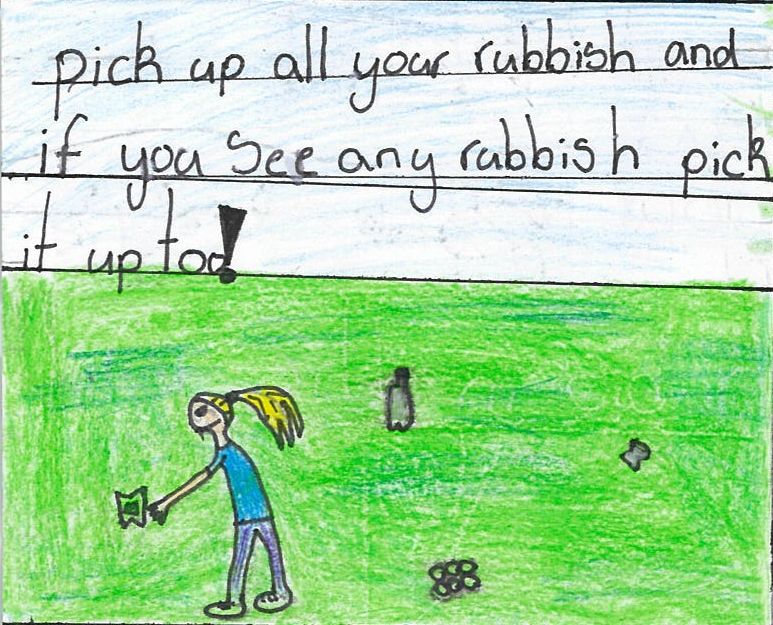 pick up all your rubbish and
if you see any rubbish pick
it up too!